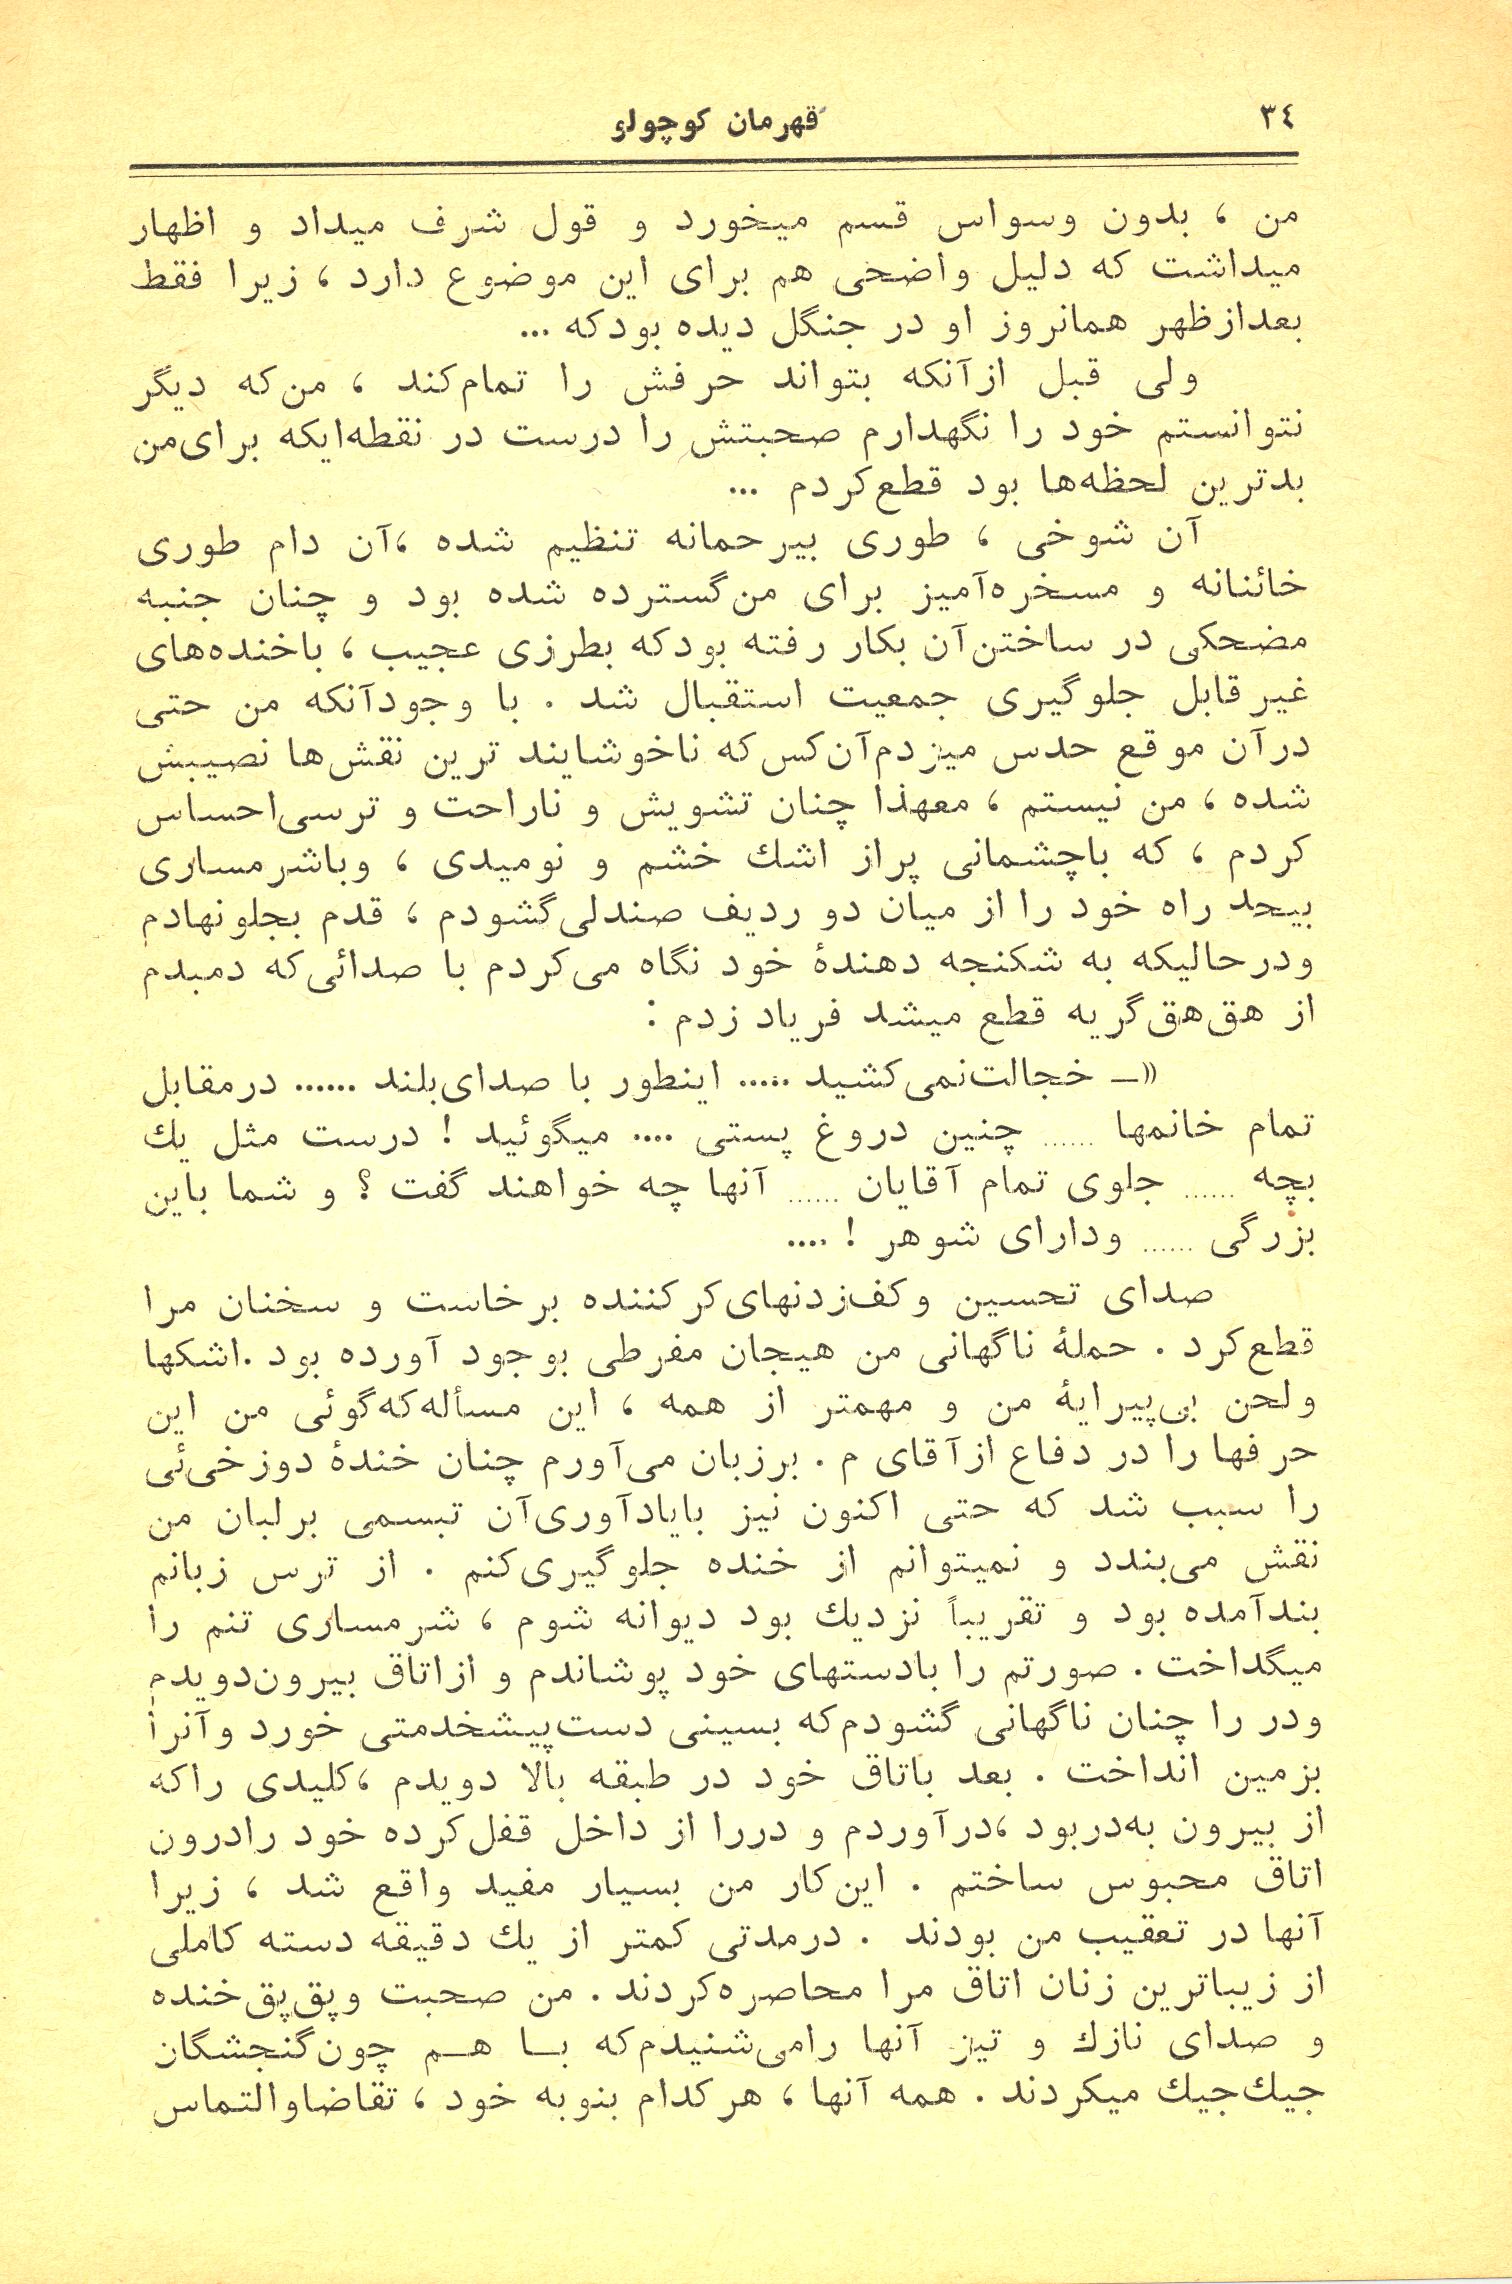 ٣٤
قهرمان کوچولو
من ، بدون وسواس قسم میخورد و قول شرف میداد و اظهار
میداشت که دلیل واضحی هم برای این موضوع دارد ، زیرا فقط
بعدازظهر همانروز او در جنگل دیده بودکه ...
ولی قبل ازآنکه بتواند حرفش را تمام‌کند ، من‌که دیگر
نتوانستم خود را نگهدارم صحبتش را درست در نقطه‌ایکه برای‌من
بدترین لحظه‌ها بود قطع‌کردم ...
آن شوخی ، طوری بیرحمانه تنظیم شده ،آن دام طوری
خائنانه و مسخره‌آمیز برای من‌گسترده شده بود و چنان جنبه
مضحکی در ساختن‌آن بکار رفته بودکه بطرزی عجیب ، باخنده‌های
غیرقابل جلوگیری جمعیت استقبال شد . با وجودآنکه من حتی
درآن موقع حدس میزدم‌آن‌کس‌که ناخوشایند ترین نقش‌ها نصیبش
شده ، من نیستم ، معهذا چنان تشویش و ناراحت و ترسی‌احساس
کردم ، که باچشمانی پراز اشك خشم و نومیدی ، وباشرمساری
بیحد راه خود را از میان دو ردیف صندلی‌گشودم ، قدم بجلونهادم
ودرحالیکه به شکنجه دهندۀ خود نگاه می‌کردم با صدائی‌که دمبدم
از هق‌هق‌گریه قطع میشد فریاد زدم :
«ـ خجالت‌نمی‌کشید ..... اینطور با صدای‌بلند ...... درمقابل
تمام خانمها ...... چنین دروغ پستی .... میگوئید ! درست مثل یك
بچه ...... جلوی تمام آقایان ...... آنها چه خواهند گفت ؟ و شما باین
بزرگی ...... ودارای شوهر ! ....
صدای تحسین وکف‌زدنهای‌کرکننده برخاست و سخنان مرا
قطع‌کرد . حملۀ ناگهانی من هیجان مفرطی بوجود آورده بود .اشکها
ولحن بی‌پیرایۀ من و مهمتر از همه ، این مسأله‌که‌گوئی من این
حرفها را در دفاع ازآقای م . برزبان می‌آورم چنان خندۀ دوزخی‌ئی
را سبب شد که حتی اکنون نیز بایادآوری‌آن تبسمی برلبان من
نقش می‌بندد و نمیتوانم از خنده جلوگیری‌کنم . از ترس زبانم
بندآمده بود و تقریباً نزدیك بود دیوانه شوم ، شرمساری تنم را
میگداخت . صورتم را بادستهای خود پوشاندم و ازاتاق بیرون‌دویدم
ودر را چنان ناگهانی گشودم‌که بسینی دست‌پیشخدمتی خورد وآنرا
بزمین انداخت . بعد باتاق خود در طبقه بالا دویدم ،کلیدی راکه
از بیرون به‌دربود ،درآوردم و دررا از داخل قفل‌کرده خود رادرون
اتاق محبوس ساختم . این‌کار من بسیار مفید واقع شد ، زیرا
آنها در تعقیب من بودند . درمدتی کمتر از یك دقیقه دسته کاملی
از زیباترین زنان اتاق مرا محاصره‌کردند . من صحبت وپق‌پق‌خنده
و صدای نازك و تیز آنها رامی‌شنیدم‌که بـا هـم چون‌گنجشگان
جیك‌جیك میکردند . همه آنها ، هرکدام بنوبه خود ، تقاضاوالتماس